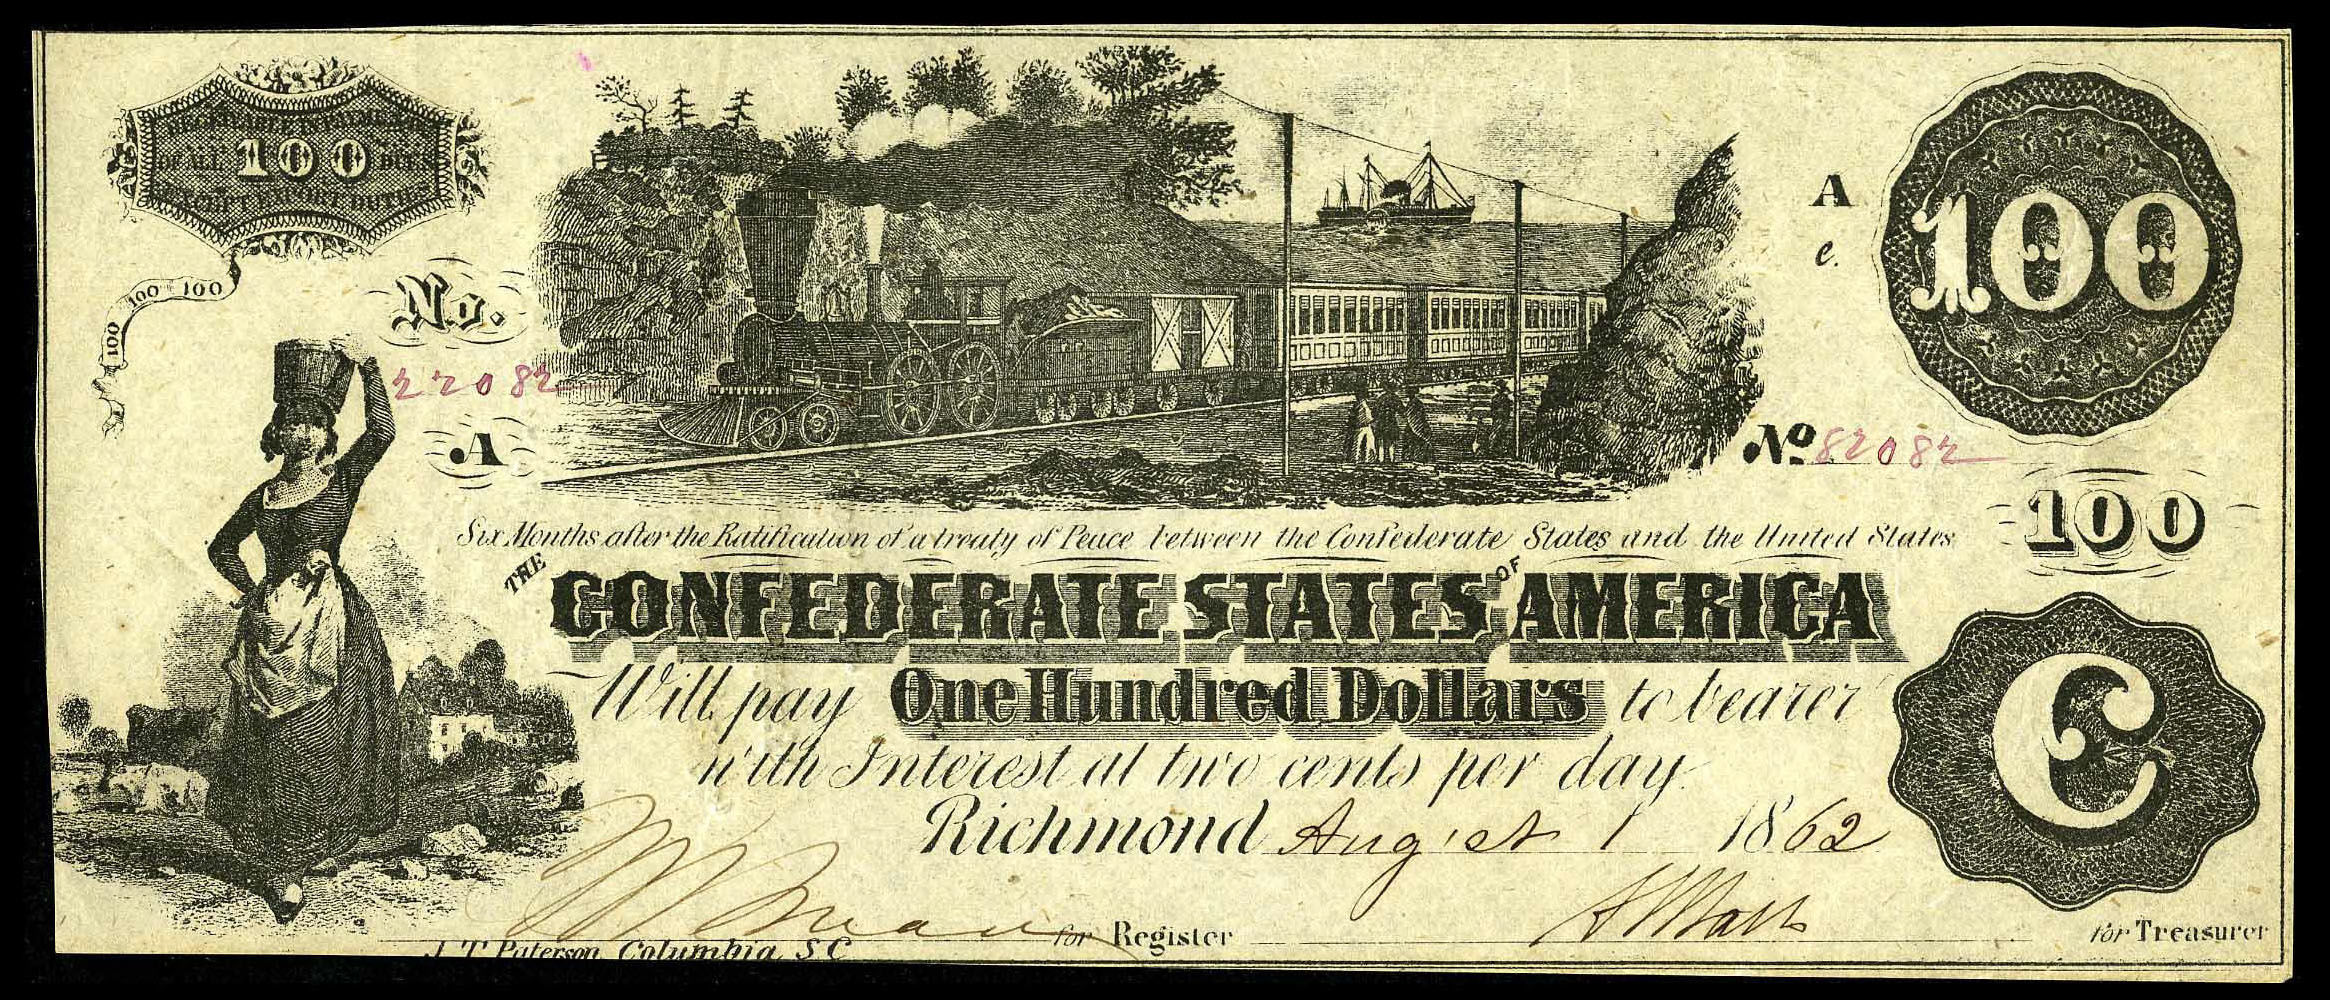 RECEIVABLE IN PAYMENT
OF ALL 100 DUES
EXCEPT EXPORT DUTIES
100 100 100
No.
22082
A
A
e.
100
No 82082
100
Six Months after the Ratification of a treaty of Peace between the Confederate States and the United States
THE CONFEDERATE STATES OF AMERICA
Will pay One Hundred Dollars to bearer
with Interest at two cents per day.
Richmond August 1 1862
C
for Register
for Treasurer
J T Paterson Columbia S C